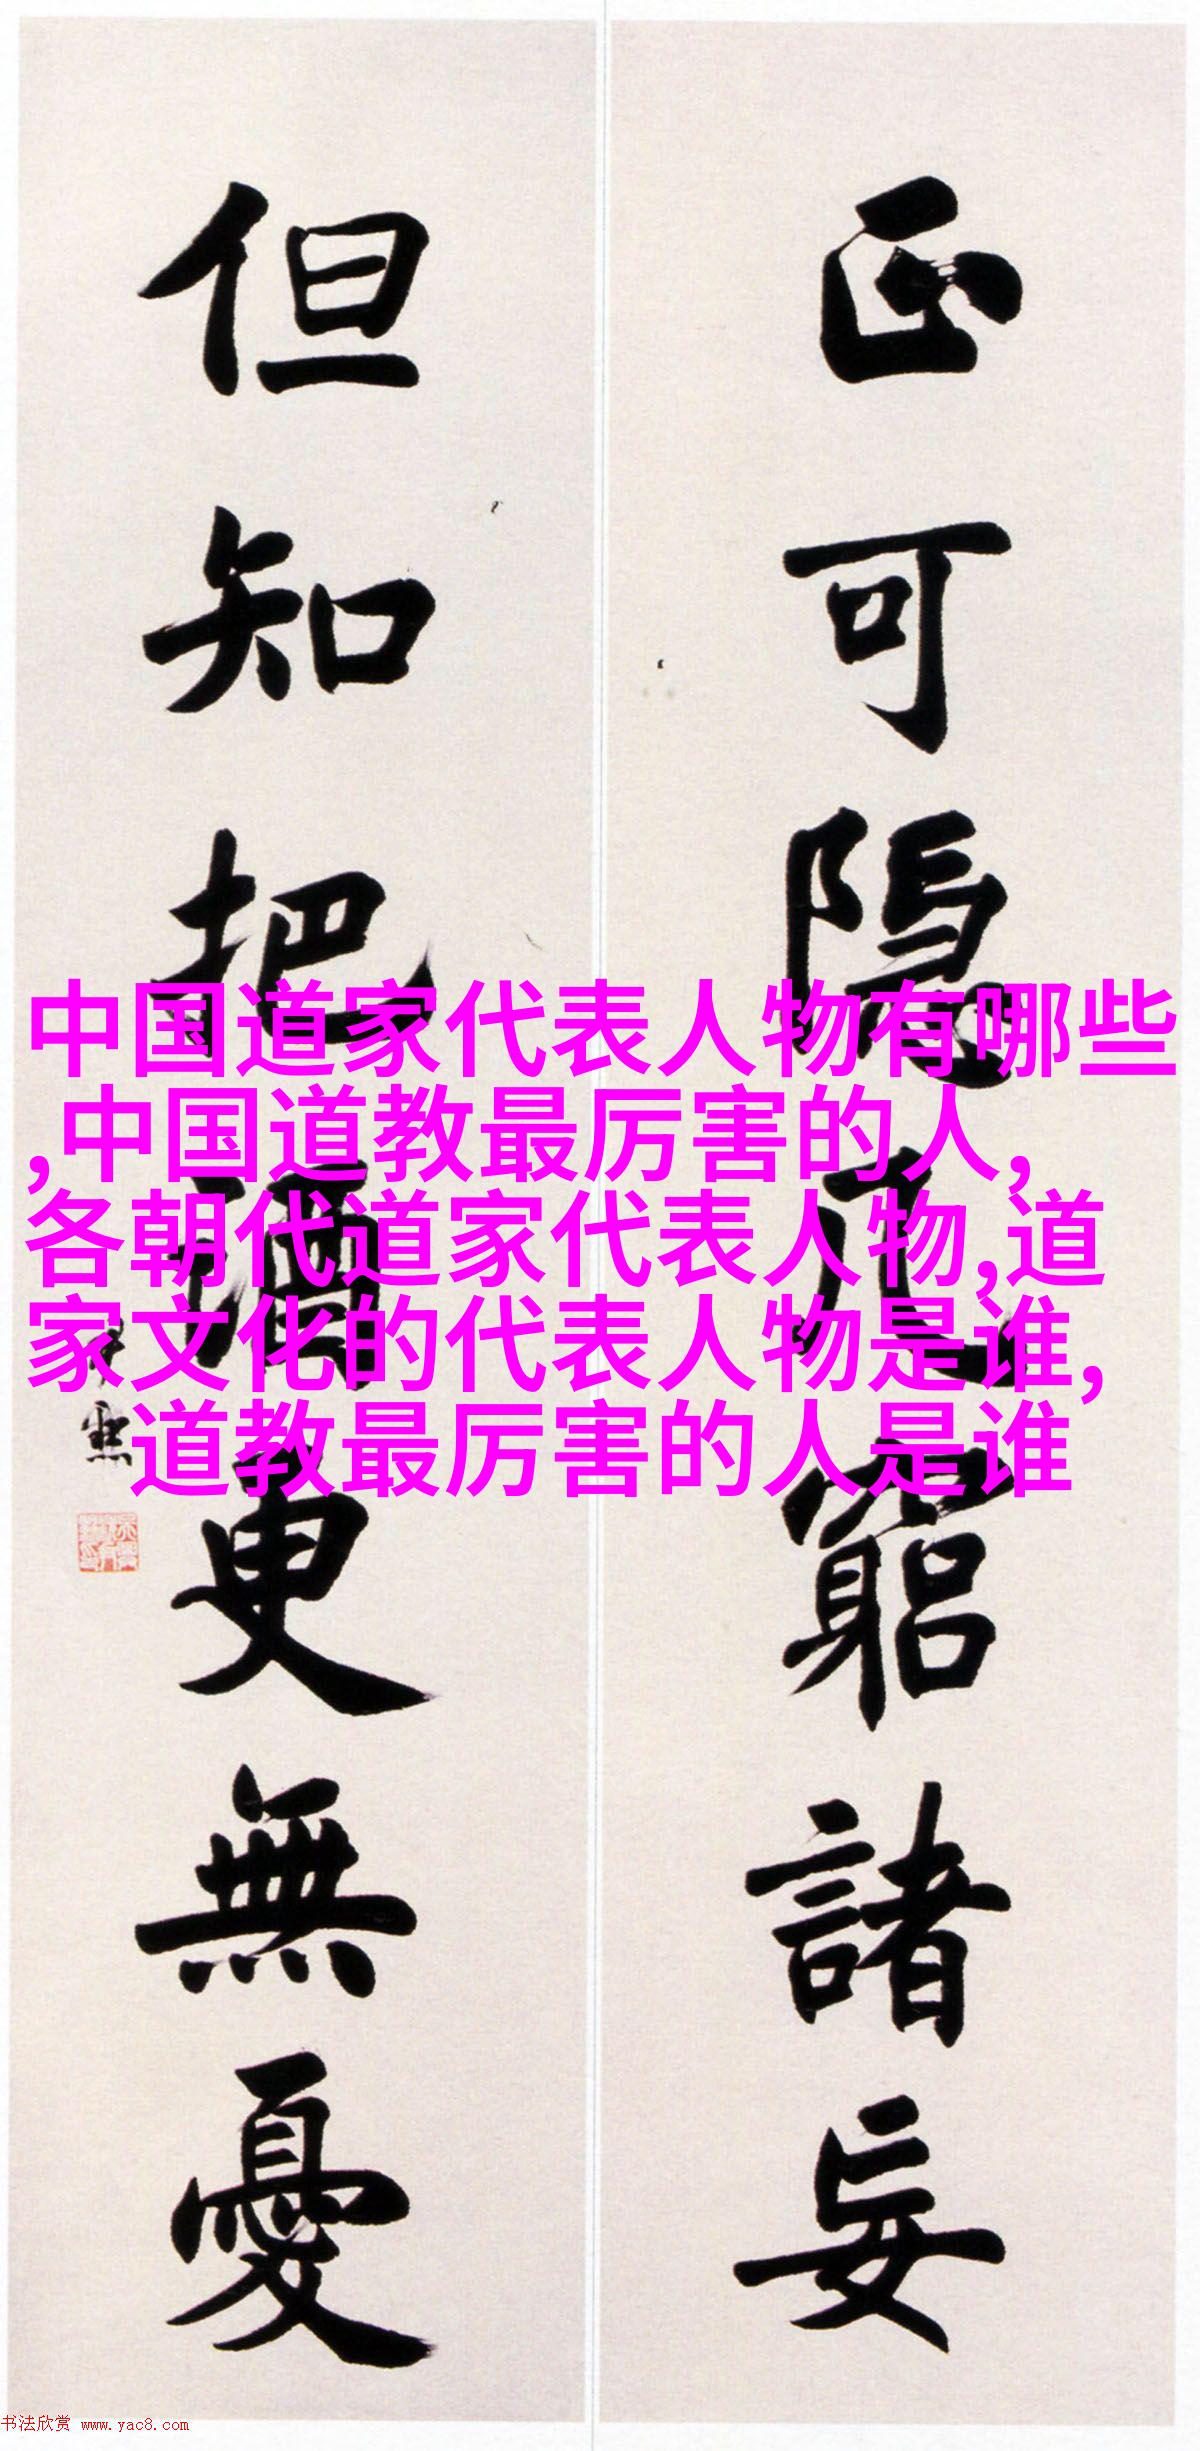 正可隱几窮諸妄
但知把酒更無憂
尹默
中国道家代表人物有哪些
,中国道教最厉害的人,
各朝代道家代表人物,道
家文化的代表人物是谁,
道教最厉害的人是谁
书法欣赏 www.yac8.com